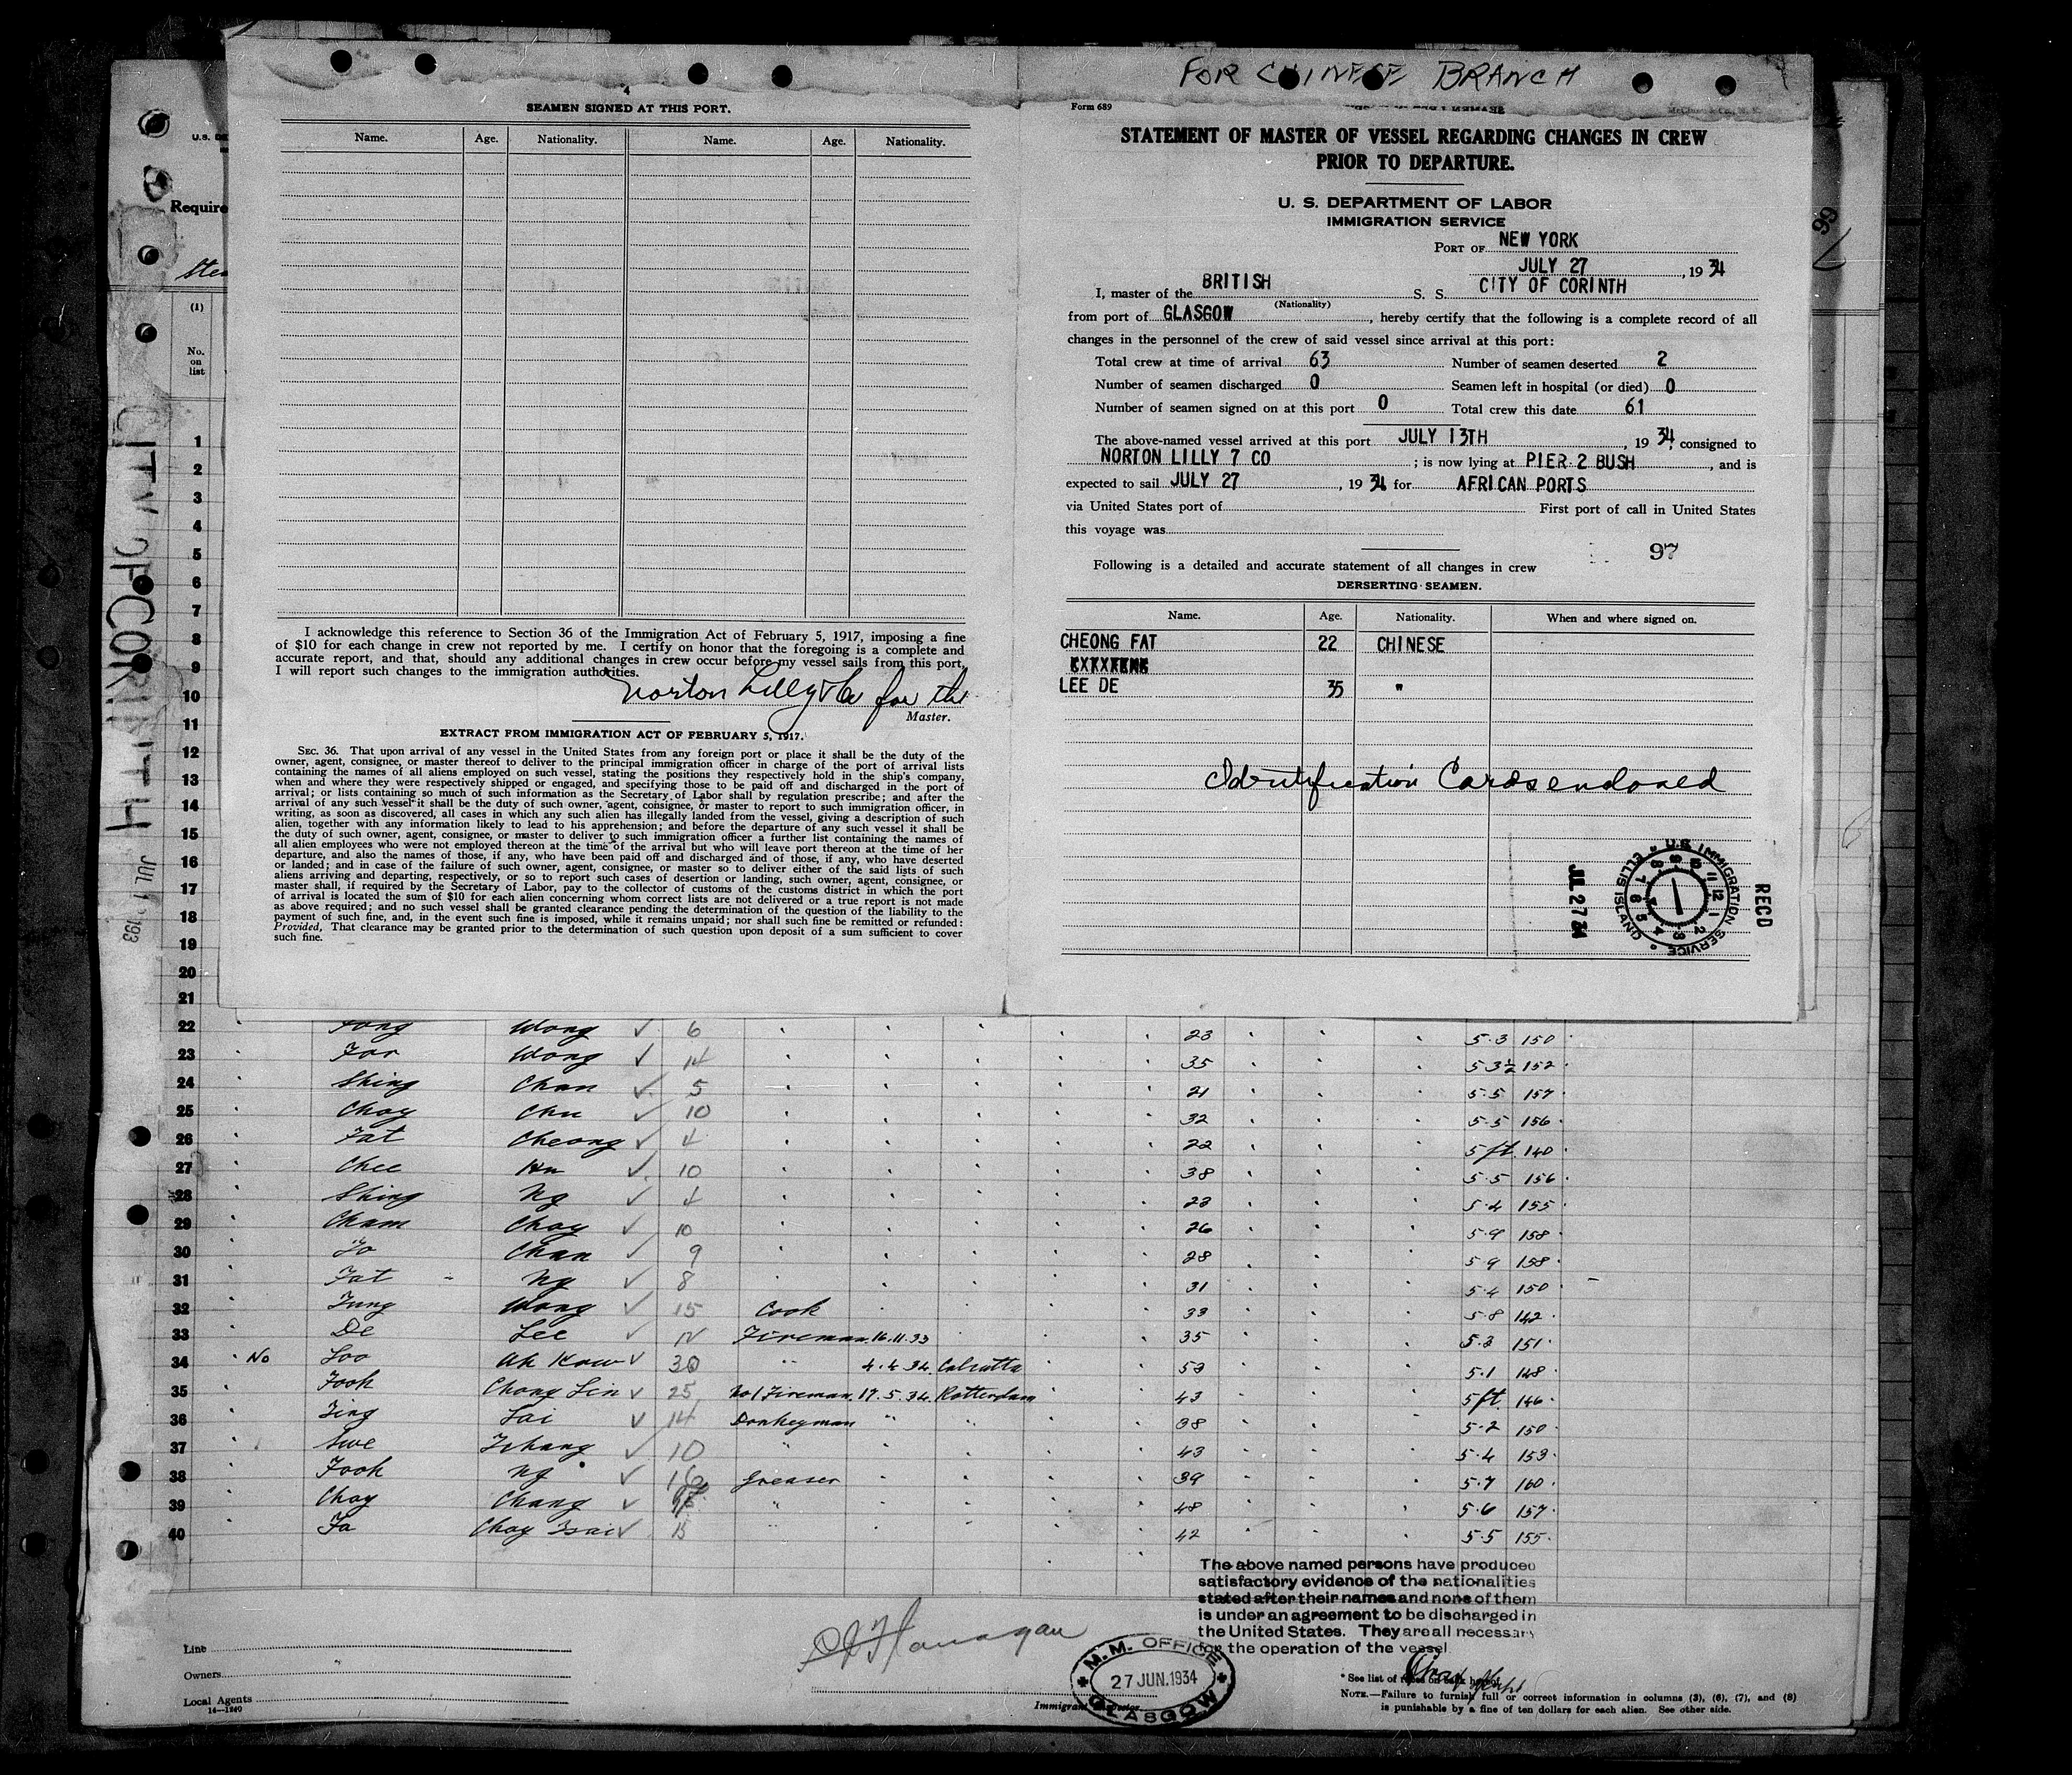 FOR CHINESE BRANCH
4
SEAMEN SIGNED AT THIS PORT.
Name. Age. Nationality. Name. Age. Nationality.
I acknowledge this reference to Section 36 of the Immigration Act of February 5, 1917, imposing a fine
of $10 for each change in crew not reported by me. I certify on honor that the foregoing is a complete and
accurate report, and that, should any additional changes in crew occur before my vessel sails from this port,
I will report such changes to the immigration authorities.
Norton Lilly & Co for the
Master.
EXTRACT FROM IMMIGRATION ACT OF FEBRUARY 5, 1917.
SEC. 36. That upon arrival of any vessel in the United States from any foreign port or place it shall be the duty of the
owner, agent, consignee, or master thereof to deliver to the principal immigration officer in charge of the port of arrival lists
containing the names of all aliens employed on such vessel, stating the positions they respectively hold in the ship's company,
when and where they were respectively shipped or engaged, and specifying those to be paid off and discharged in the port of
arrival; or lists containing so much of such information as the Secretary of Labor shall by regulation prescribe; and after the
arrival of any such vessel it shall be the duty of such owner, agent, consignee, or master to report to such immigration officer, in
writing, as soon as discovered, all cases in which any such alien has illegally landed from the vessel, giving a description of such
alien, together with any information likely to lead to his apprehension; and before the departure of any such vessel it shall be
the duty of such owner, agent, consignee, or master to deliver to such immigration officer a further list containing the names of
all alien employees who were not employed thereon at the time of the arrival but who will leave port thereon at the time of her
departure, and also the names of those, if any, who have been paid off and discharged and of those, if any, who have deserted
or landed; and in case of the failure of such owner, agent, consignee, or master so to deliver either of the said lists of such
aliens arriving and departing, respectively, or so to report such cases of desertion or landing, such owner, agent, consignee, or
master shall, if required by the Secretary of Labor, pay to the collector of customs of the customs district in which the port
of arrival is located the sum of $10 for each alien concerning whom correct lists are not delivered or a true report is not made
as above required; and no such vessel shall be granted clearance pending the determination of the question of the liability to the
payment of such fine, and, in the event such fine is imposed, while it remains unpaid; nor shall such fine be remitted or refunded:
Provided, That clearance may be granted prior to the determination of such question upon deposit of a sum sufficient to cover
such fine.
Form 689
STATEMENT OF MASTER OF VESSEL REGARDING CHANGES IN CREW
PRIOR TO DEPARTURE.
U. S. DEPARTMENT OF LABOR
IMMIGRATION SERVICE
PORT OF NEW YORK
JULY 27, 1934
I, master of the BRITISH S. S. CITY OF CORINTH
(Nationality)
from port of GLASGOW, hereby certify that the following is a complete record of all
changes in the personnel of the crew of said vessel since arrival at this port:
Total crew at time of arrival 63 Number of seamen deserted 2
Number of seamen discharged 0 Seamen left in hospital (or died) 0
Number of seamen signed on at this port 0 Total crew this date 61
The above-named vessel arrived at this port JULY 13TH, 1934, consigned to
NORTON LILLY 7 CO; is now lying at PIER 2 BUSH, and is
expected to sail JULY 27, 1934 for AFRICAN PORTS
via United States port of First port of call in United States
this voyage was
97
Following is a detailed and accurate statement of all changes in crew
DERSERTING SEAMEN.
Name. Age. Nationality. When and where signed on.
CHEONG FAT 22 CHINESE
LEE DE 35 "
Identification Cards enclosed
RECD
U.S. IMMIGRATION SERVICE
ELLIS ISLAND
JUL 27 34
99
Require
(1)
No.
on
list
CITY OF CORINTH
1
2
3
4
5
6
7
8
9
10
11
12
13
14
15
16
17
18
19
20
21
22 Fong Wong ✓ 6 23 5.3 150
23 Far Wong ✓ 14 35 5 3½ 152
24 Shing Chan ✓ 5 21 5.5 157
25 Choy Chu ✓ 10 32 5.5 156
26 Fat Cheong ✓ 4 22 5 ft. 140
27 Chee ✓ 10 38 5.5 156
28 Shing Ng ✓ 4 23 5.4 155
29 Cham Choy ✓ 10 26 5.9 158
30 Chan ✓ 9 28 5 9 158
31 Fat Ng ✓ 8 31 5.4 150
32 Fung Wong ✓ 15 Cook 33 5.8 142
33 De Lee ✓ 12 Fireman 16.11.33 35 5.3 151
34 No Loo Ah Kow ✓ 30 " 4.4.34 Calcutta 53 5.1 148
35 Fook Chong Lin ✓ 25 No 1 Fireman 17.5.34 Rotterdam 43 5 ft. 146
36 Lai ✓ 14 Donkeyman " 38 5.2 150
37 ✓ 10 " 43 5.4 153
38 Fook Ng ✓ 16 Greaser 39 5.7 160
39 Choy Chang ✓ " 48 5.6 157
40 Fa Choy Tsai ✓ 15 42 5.5 155
The above named persons have produced
satisfactory evidence of the nationalities
stated after their names and none of them
is under an agreement to be discharged in
the United States. They are all necessary
for the operation of the vessel
Line
Owners
Local Agents
14—1240
M.M. OFFICE
27 JUN.1934
GLASGOW
* See list of races on back hereof.
NOTE.—Failure to furnish full or correct information in columns (3), (6), (7), and (8)
is punishable by a fine of ten dollars for each alien. See other side.